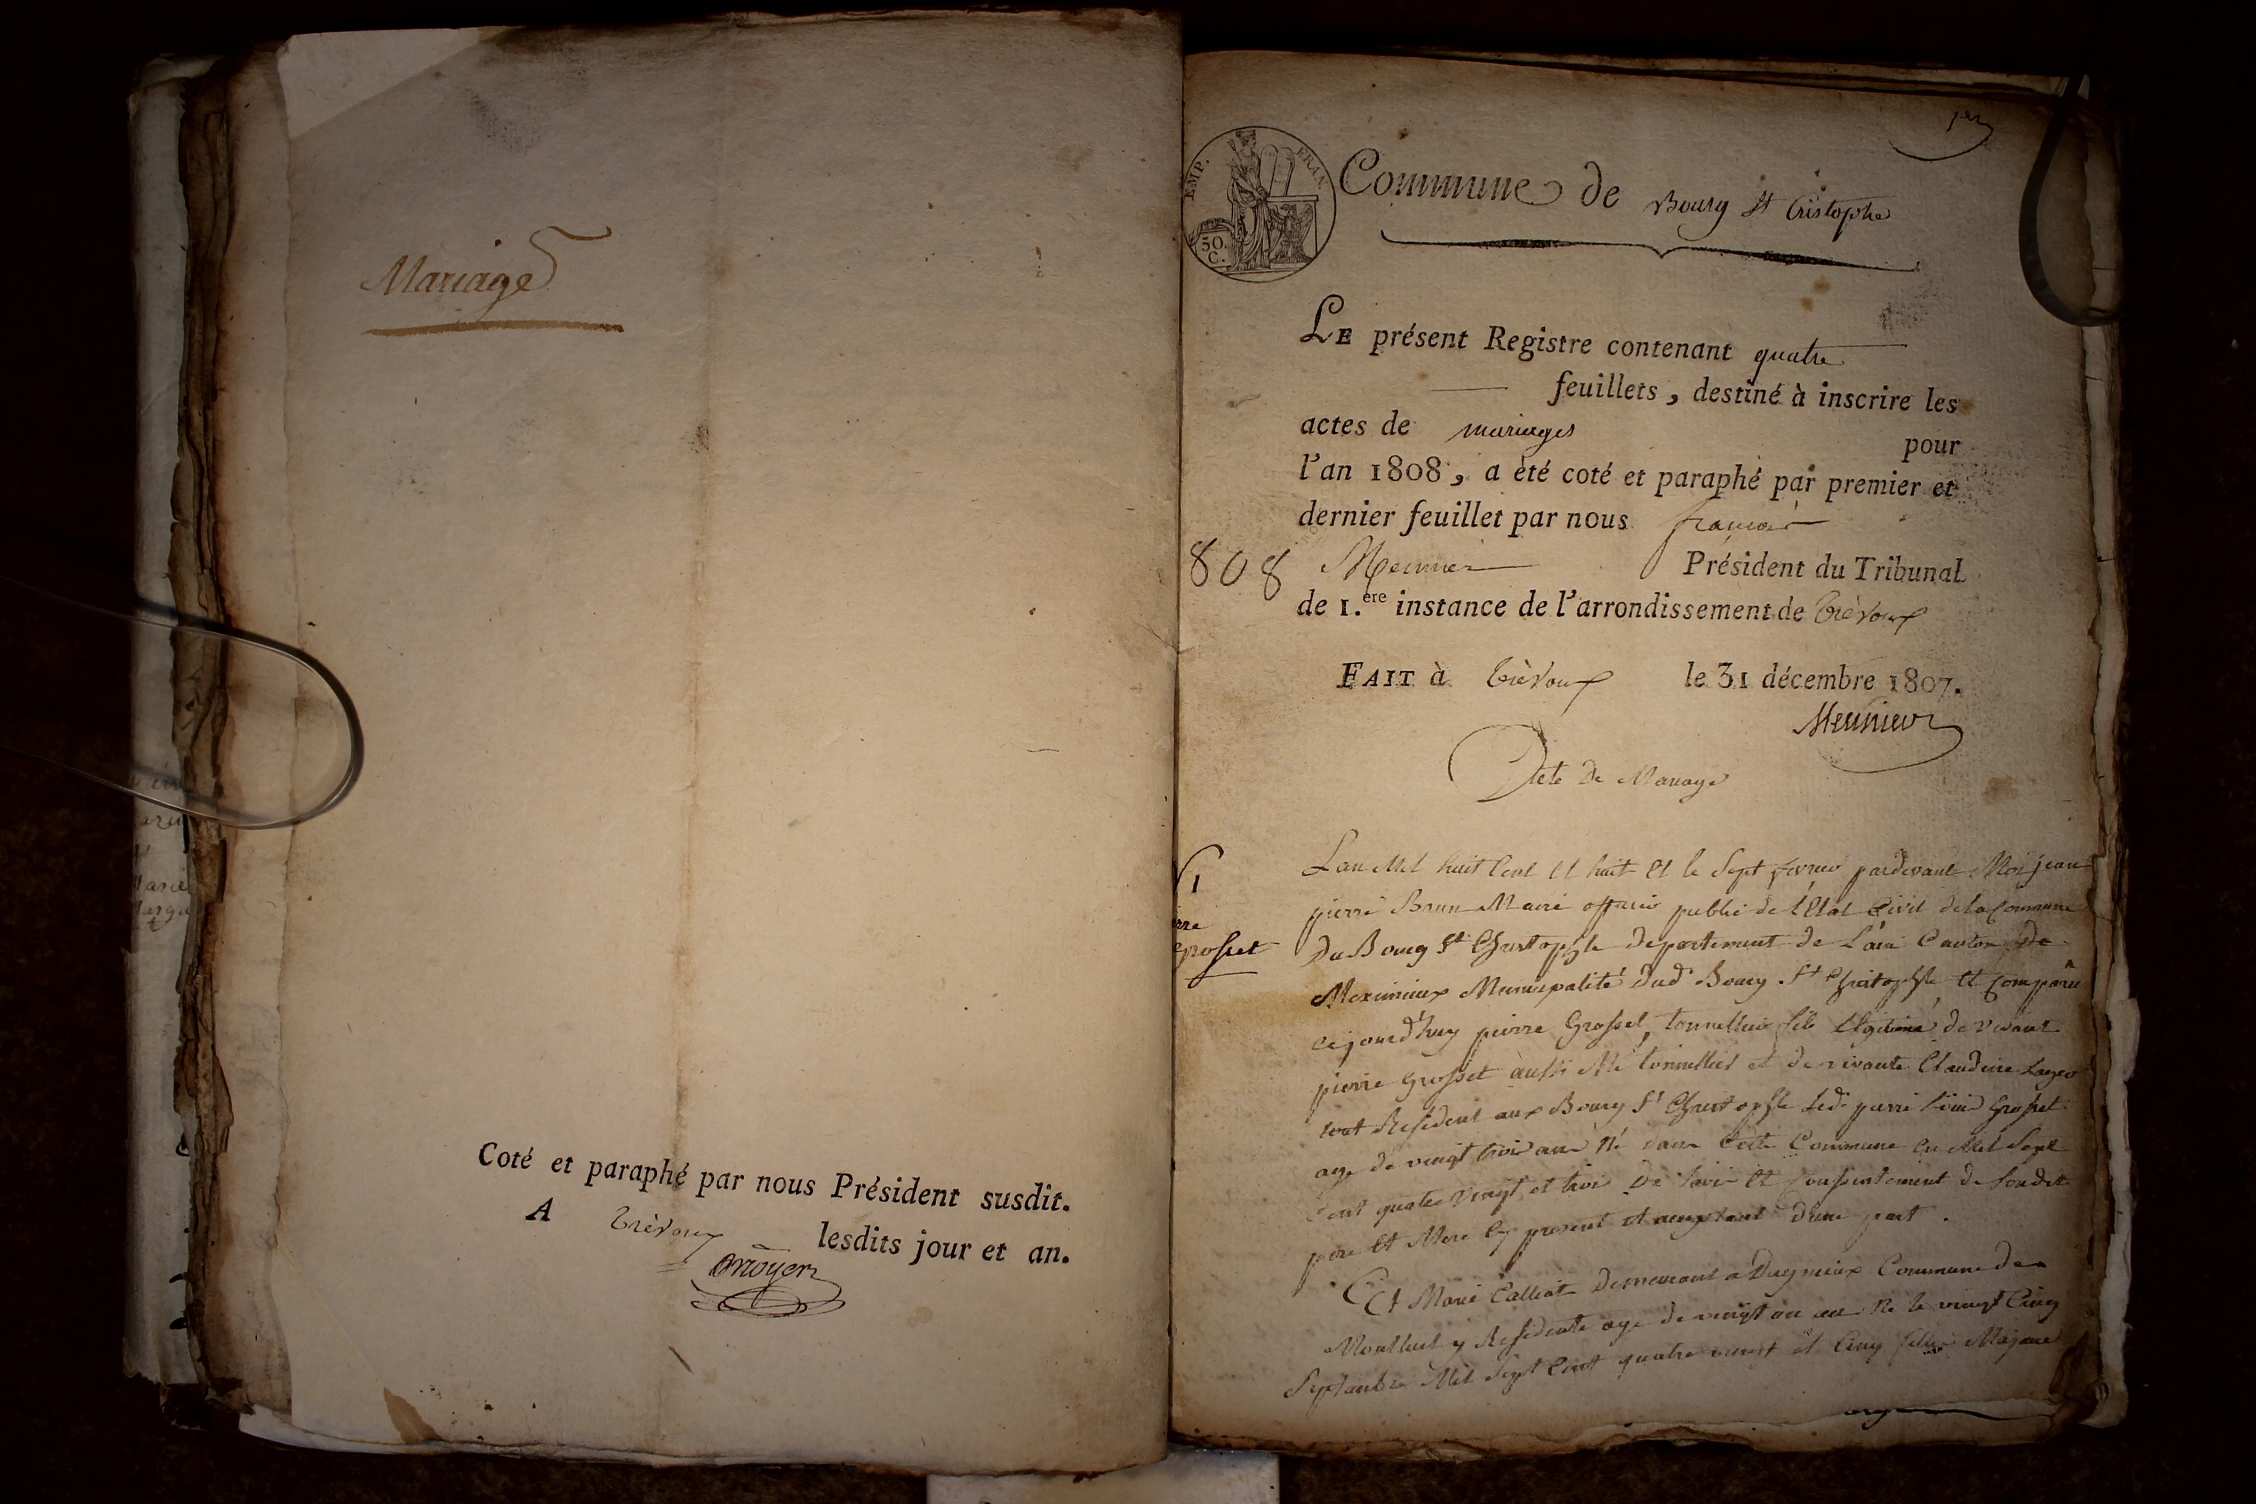 Mariage
Coté et paraphé par nous Président susdit.
A Trévoux lesdits jour et an.
1er
EMP. FRAN.
50 C.
Commune de Bourg St Cristophe
LE présent Registre contenant quatre
feuillets, destiné à inscrire les
actes de mariages pour
l'an 1808, a été coté et paraphé par premier et
dernier feuillet par nous françois
808
Meunier Président du Tribunal
de 1.ere instance de l'arrondissement de Trévoux
FAIT à Trèvoux le 31 décembre 1807.
Meunier
Acte de Mariage
1
rre
Grosset
L'an Mil huit Cent et huit et le Sept pardevant Moi jean
pierre Brun Maire officier public de l'Etat Civil de la Commune
Du Bourg St Christophle departement de L'ain Canton De
Meximieux Municipalité Dud Bourg St Christophle et Comparu
cejourd'huy pierre Grosset, tonnellier fils Legitime de vivant
pierre Grosset aussi Me tonnellier et de vivante Claudine
tout Résident aux Bourg St Christophle Led. pierre Grosset
age de vingt trois ans Né dans Cette Commune en Mil Sept
Cent quatre vingt et trois De l'avis et Consentement de Sondit
pere et Mere Cy present et acceptant d'une part.
Et Marie Calliat Demeurant a Dagnieux Commune de
Montluel y Residente age de vingt un an Né le vingt Cinq
Septembre Mil Sept Cent quatre vingt et Cinq fille Majeure